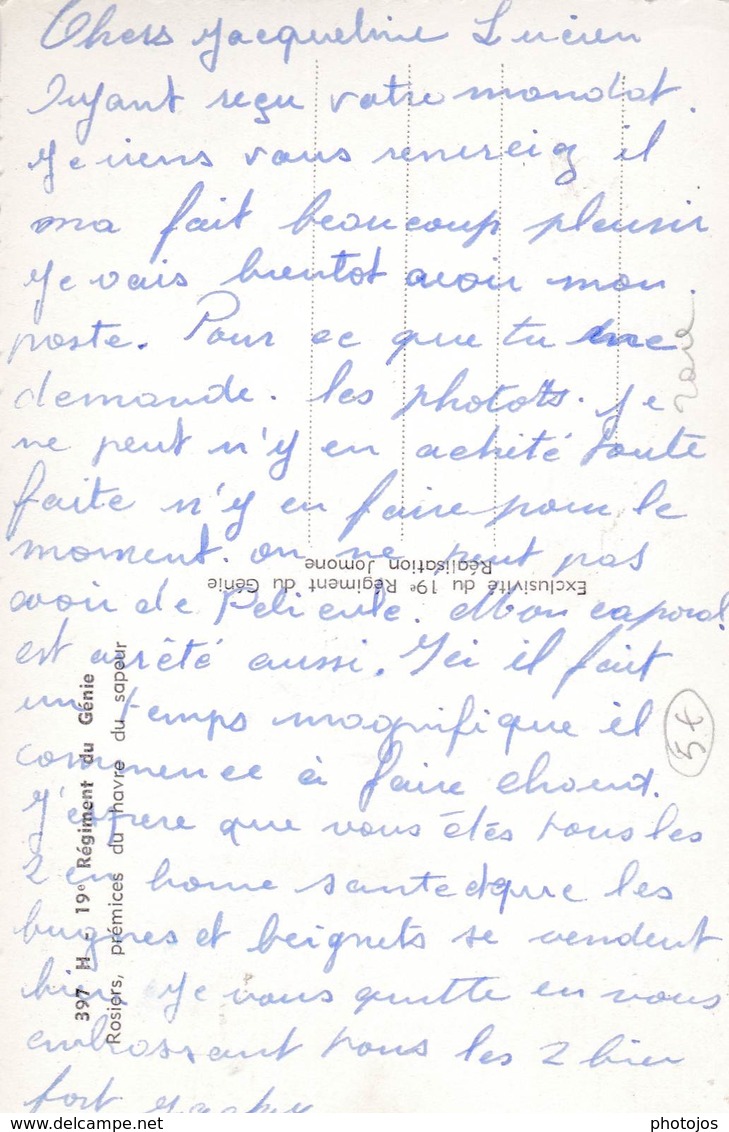 Chers Jacqueline Lucien
Ayant reçu votre mandat.
Je viens vous renseig il
ma fait beaucoup plaisir
Je vais bientot avoir mon
poste. Pour ce que tu me
demande. les photots. Je
ne peut n'y en acheté toute
faite n'y en faire pour le
moment. on ne peut pas
avoir de Pelicule. Mon caporal
est arrêté aussi. Ici il fait
un temps magnifique il
commence à faire chaud.
J'espere que vous étés tous les
2 en bonne sante et que les
bugnes et beignets se vendent
bien Je vous quitte en vous
embrassant tous les 2 bien
fort Jacky
Exclusivité du 19e Régiment du Génie
Réalisation Jomone
397 H - 19e Régiment du Génie
Rosiers, prémices du havre du sapeur
5€
photojos